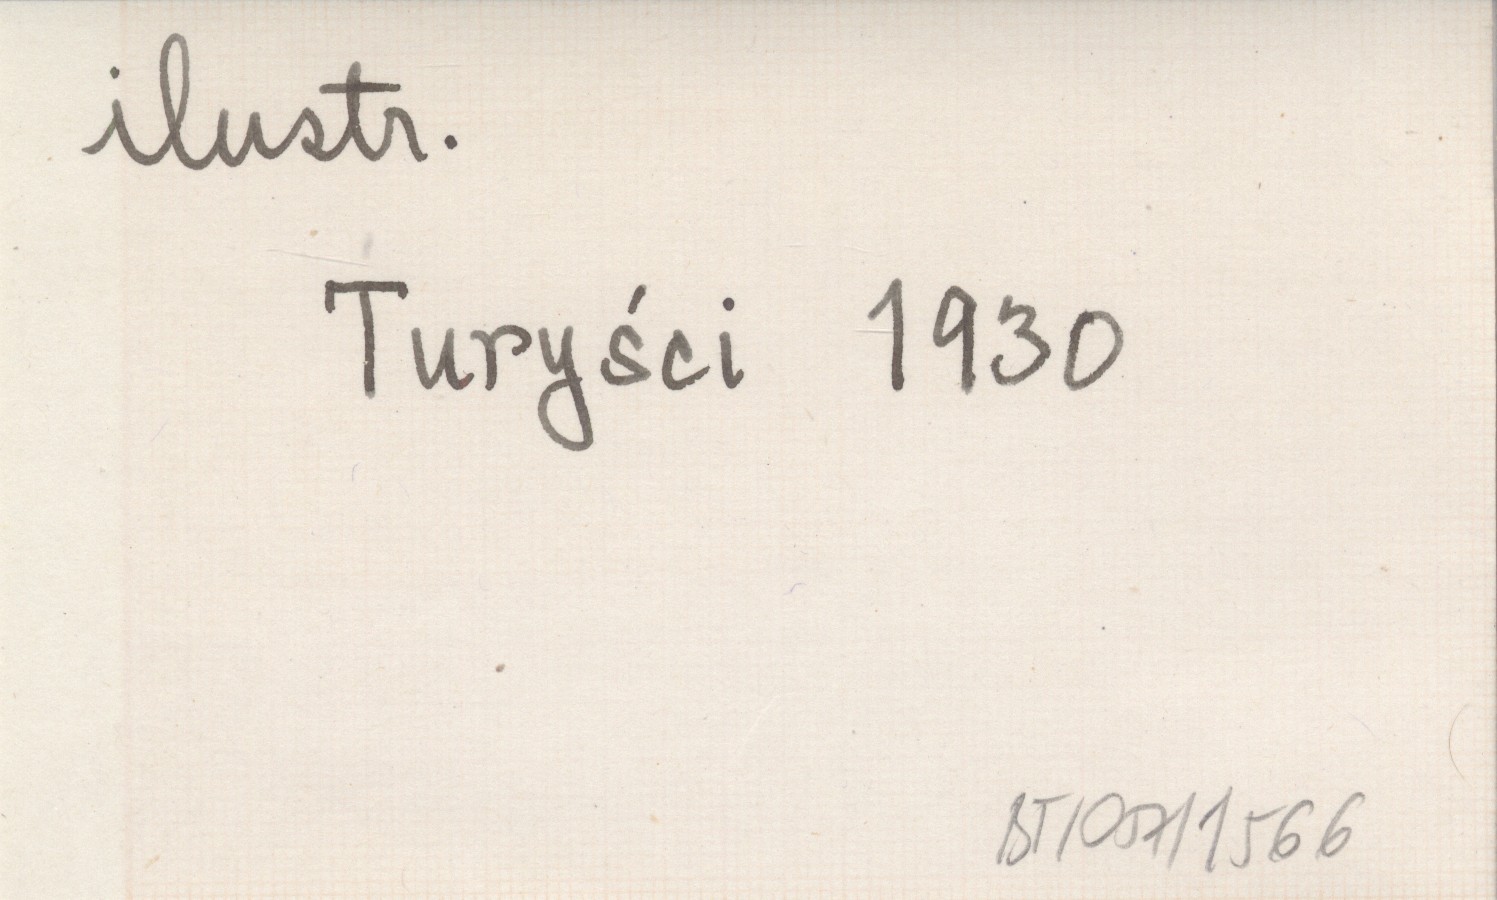 ilustr.
Turyści 1930
BT/057/1566